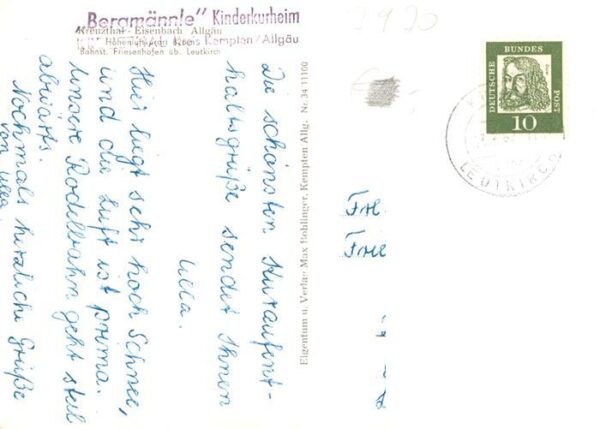 „Bergmännle" Kinderkurheim
Kreuzthal-Eisenbach Allgäu
Kreis Kempten/Allgäu
Bahnst. Friesenhofen ob. Leutkirch
Die schönsten Kuraufent-
haltsgrüße sendet Ihnen
Ulla.
Hier liegt sehr hoch Schnee,
und die Luft ist prima.
Unsere Rodelbahn geht steil
abwärts.
Nochmals herzliche Grüße
von Ulla
Eigentum u. Verlag Max Bohlinger, Kempten Allg. Nr. 34 11100
7970
DEUTSCHE
BUNDES
POST
10
LEUTKIRCH